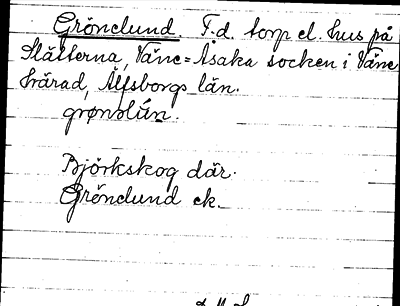 Grönelund. F.d. torp el. hus på
Slätterna, Väne=Åsaka socken i Väne
härad, Älfsborgs län.
grønolún.
Björkskog där.
Grönelund ek.